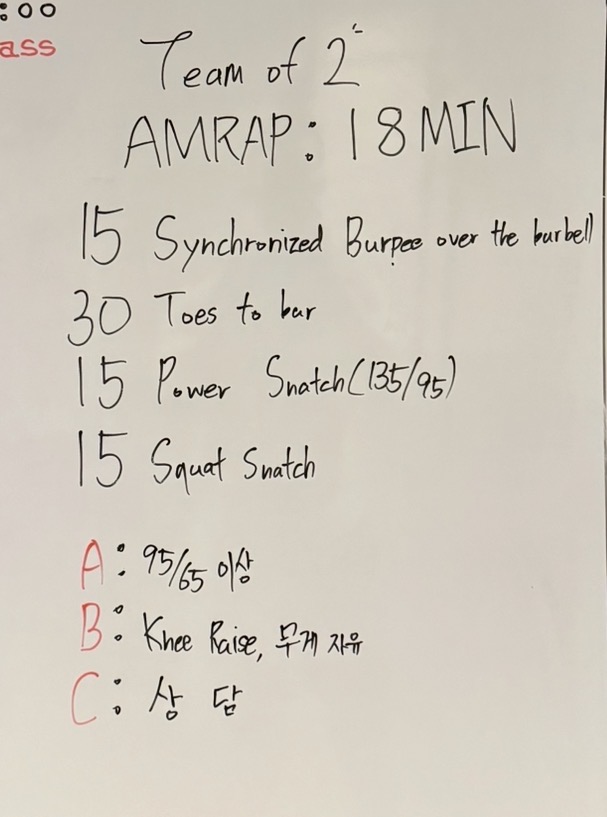 :00
ass
Team of 2
AMRAP: 18 MIN
15 Synchronized Burpee over the burbell
30 Toes to bar
15 Power Snatch (135/95)
15 Squat Snatch
A: 95/65 이상
B: Knee Raise, 무게 자유
C: 상 담